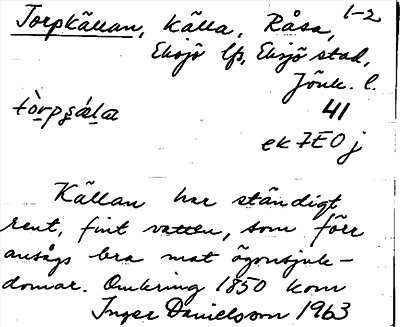 Torpkällan, Källa, Råsa, 1-2
Eksjö lfs, Eksjö stad,
Jönk. l.
41
ek 7E0 j
Källan har ständigt
rent, fint vatten, som förr
ansågs bra mot ögonsjuk-
domar. Omkring 1850 kom
Inger Danielsson 1963